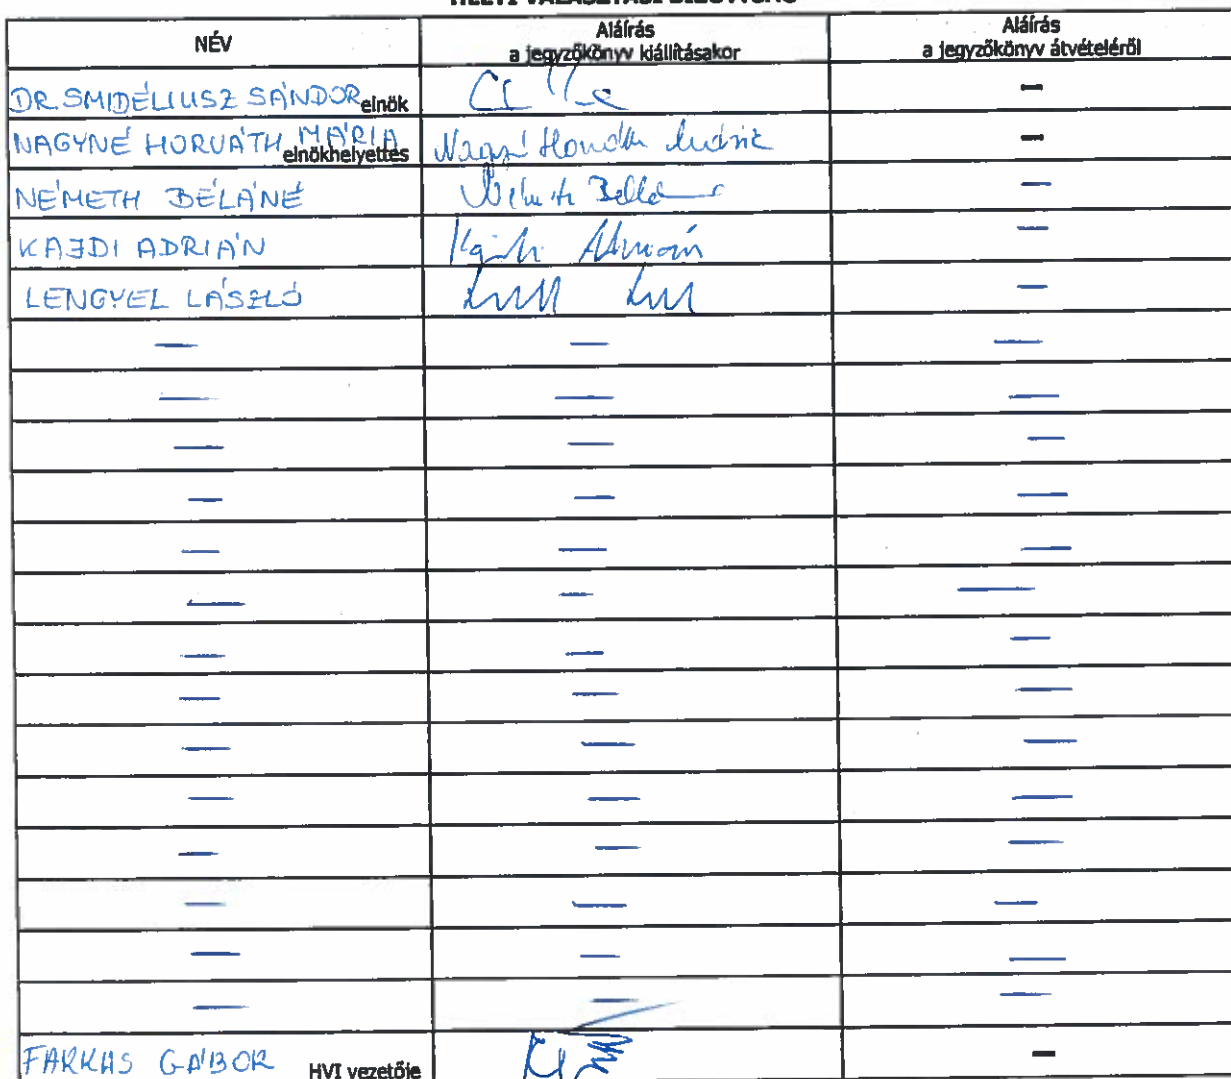 HELYI VÁLASZTÁSI BIZOTTSÁG
NÉV
Aláírás
a jegyzőkönyv kiállításakor
Aláírás
a jegyzőkönyv átvételéről
DR. SMIDÉLIUSZ SÁNDOR elnök
—
NAGYNÉ HORVÁTH MÁRIA elnökhelyettes
Nagyné Horváth Mária
—
NÉMETH BÉLÁNÉ
Németh Béláné
—
KAJDI ADRIÁN
Kajdi Adrián
—
LENGYEL LÁSZLÓ
—
— — —
— — —
— — —
— — —
— — —
— — —
— — —
— — —
— — —
— — —
— — —
— — —
— — —
— — —
FARKAS GÁBOR HVI vezetője
—